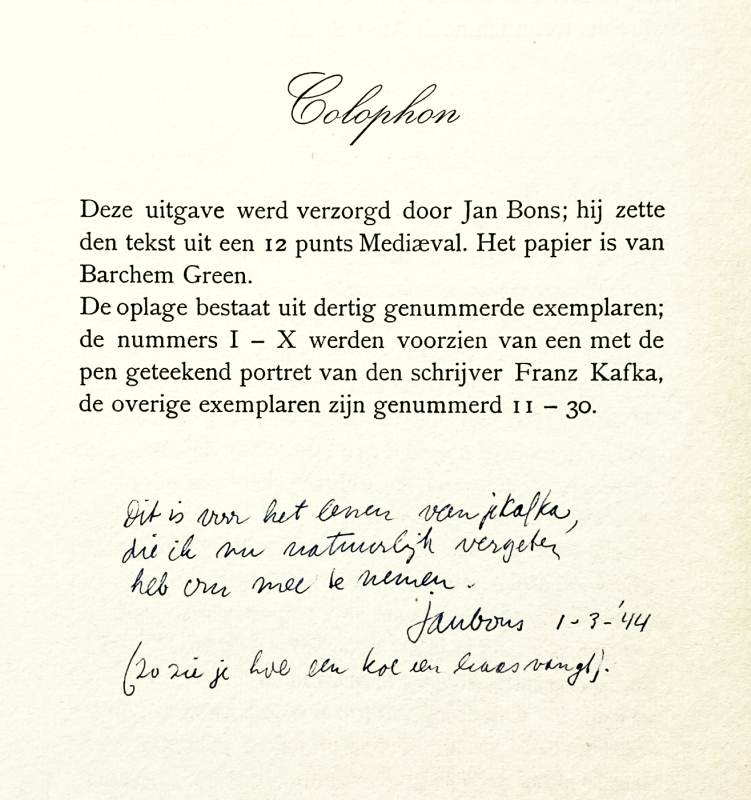 Colophon
Deze uitgave werd verzorgd door Jan Bons; hij zette
den tekst uit een 12 punts Mediæval. Het papier is van
Barchem Green.
De oplage bestaat uit dertig genummerde exemplaren;
de nummers I – X werden voorzien van een met de
pen geteekend portret van den schrijver Franz Kafka,
de overige exemplaren zijn genummerd 11 – 30.
Dit is voor het lenen van je Kafka,
die ik nu natuurlijk vergeten
heb om mee te nemen.
Jan Bons 1-3-'44
(zo zie je hoe een koe een haas vangt).